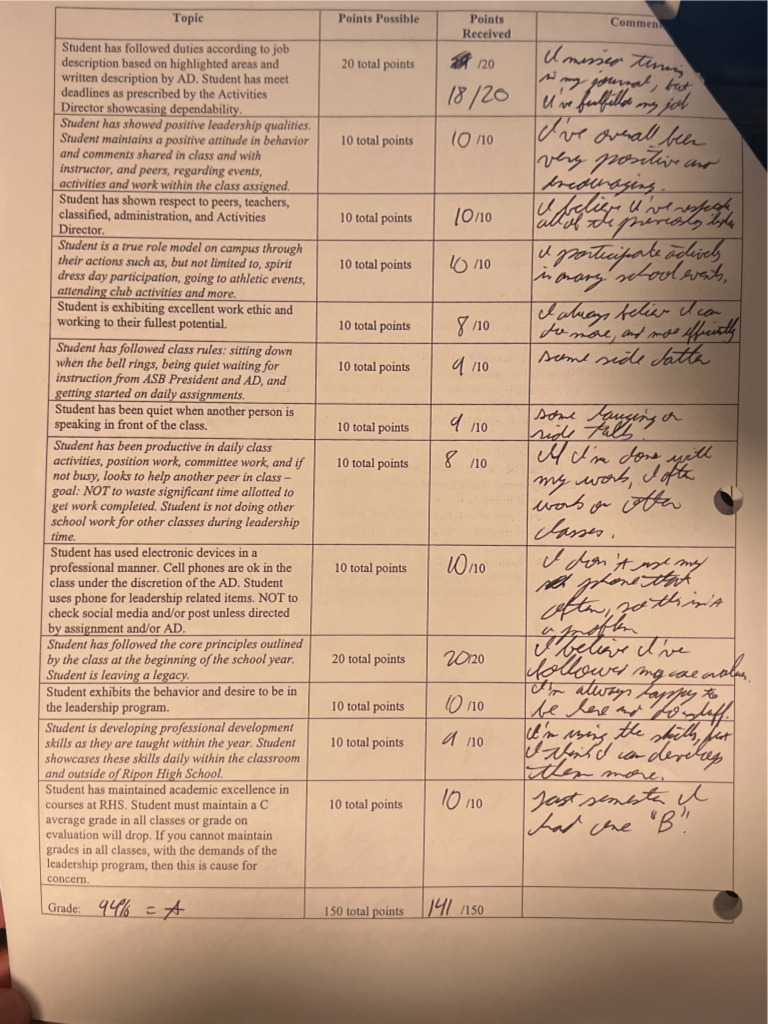 Topic
Points Possible
Points
Received
Commen
Student has followed duties according to job
description based on highlighted areas and
written description by AD. Student has meet
deadlines as prescribed by the Activities
Director showcasing dependability.
20 total points
/20
18/20
I missed turning
in my journal, but
I've fulfilled my job
Student has showed positive leadership qualities.
Student maintains a positive attitude in behavior
and comments shared in class and with
instructor, and peers, regarding events,
activities and work within the class assigned.
10 total points
10 /10
I've overall been
very positive and
encouraging.
Student has shown respect to peers, teachers,
classified, administration, and Activities
Director.
10 total points
10/10
I believe I've respected
all of the previously listed
Student is a true role model on campus through
their actions such as, but not limited to, spirit
dress day participation, going to athletic events,
attending club activities and more.
10 total points
10 /10
I participate actively
in many school events.
Student is exhibiting excellent work ethic and
working to their fullest potential.
10 total points
8 /10
I always believe I can
do more, and more efficiently
Student has followed class rules: sitting down
when the bell rings, being quiet waiting for
instruction from ASB President and AD, and
getting started on daily assignments.
10 total points
9 /10
some side
Student has been quiet when another person is
speaking in front of the class.
10 total points
9 /10
some or
side talks.
Student has been productive in daily class
activities, position work, committee work, and if
not busy, looks to help another peer in class –
goal: NOT to waste significant time allotted to
get work completed. Student is not doing other
school work for other classes during leadership
time.
10 total points
8 /10
If I'm done with
my work, I often
work on other
classes.
Student has used electronic devices in a
professional manner. Cell phones are ok in the
class under the discretion of the AD. Student
uses phone for leadership related items. NOT to
check social media and/or post unless directed
by assignment and/or AD.
10 total points
10/10
I don't use my
phone that
often, so this isn't
a problem
Student has followed the core principles outlined
by the class at the beginning of the school year.
Student is leaving a legacy.
20 total points
20/20
I believe I've
followed my core values.
Student exhibits the behavior and desire to be in
the leadership program.
10 total points
10 /10
I'm always happy to
be here and do stuff.
Student is developing professional development
skills as they are taught within the year. Student
showcases these skills daily within the classroom
and outside of Ripon High School.
10 total points
9 /10
I'm using the skills, but
I think I can develop
them more.
Student has maintained academic excellence in
courses at RHS. Student must maintain a C
average grade in all classes or grade on
evaluation will drop. If you cannot maintain
grades in all classes, with the demands of the
leadership program, then this is cause for
concern.
10 total points
10 /10
Last semester I
had one "B".
Grade: 94% = A
150 total points
141 /150